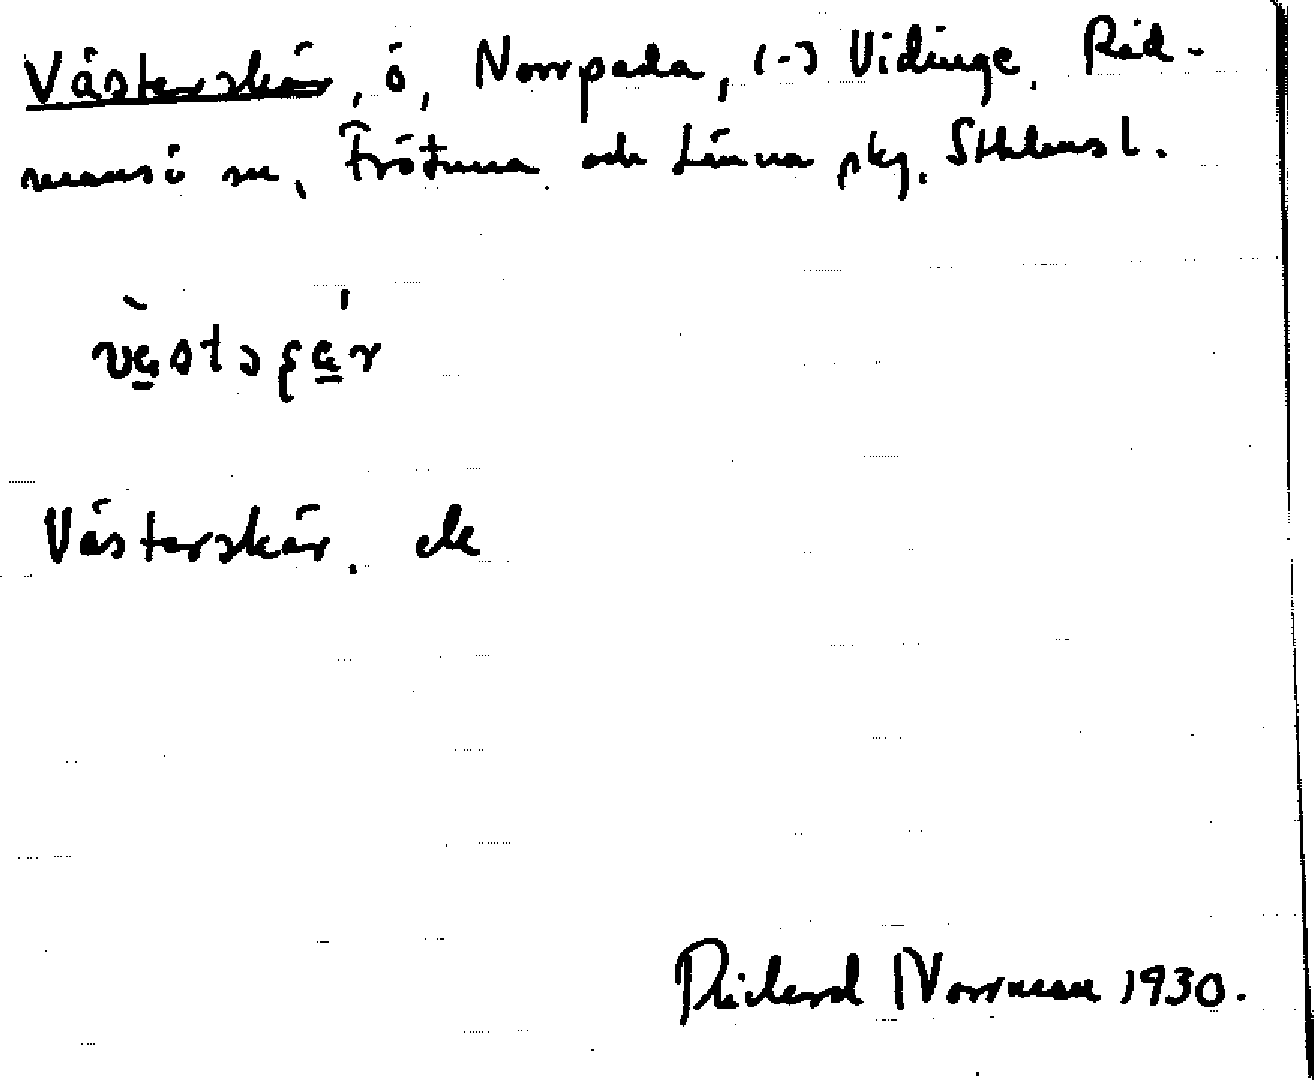 Västerskär, ö, Norrpada, (-) Vidinge, Råd-
mansö sn, Frötuna och Länna skg. Sthlms l.
Västerskär. ek
Richard Norrman 1930.